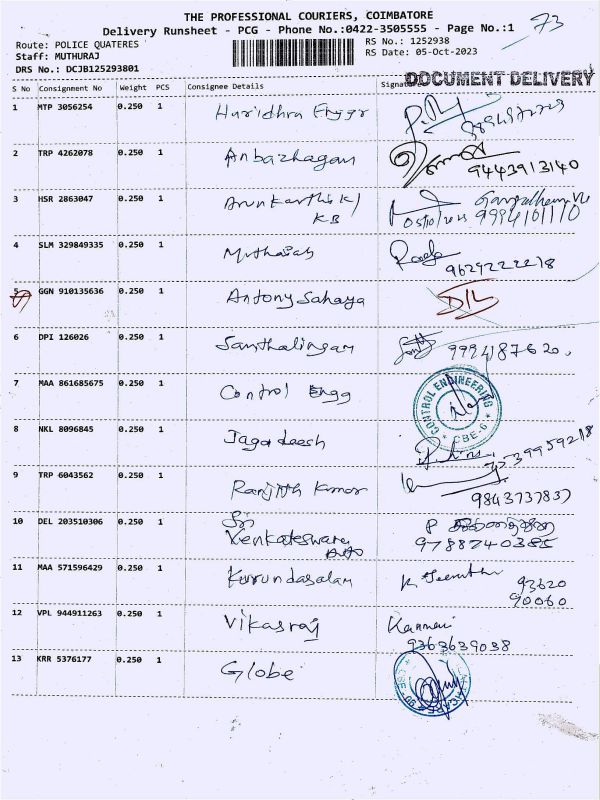 THE PROFESSIONAL COURIERS, COIMBATORE
Delivery Runsheet - PCG - Phone No.:0422-3505555 - Page No.:1
73
Route: POLICE QUATERES
RS No.: 1252938
Staff: MUTHURAJ
RS Date: 05-Oct-2023
DRS No.: DCJB125293801
DOCUMENT DELIVERY
S No Consignment No Weight PCS Consignee Details
1 MTP 3056254 0.250 1
2 TRP 4262078 0.250 1 Anbazhagan
9443913140
3 HSR 2863047 0.250 1 Arunkarthick/
KB
05/10/2023 9994101110
4 SLM 329849335 0.250 1
9629222218
5 GGN 910135636 0.250 1 Antony Sahaya D/L
6 DPI 126026 0.250 1 Samthalingam 9994187620.
7 MAA 861685675 0.250 1 Control Engg
CONTROL ENGINEERING
CBE-6
8 NKL 8096845 0.250 1 Jagadeesh
9 TRP 6043562 0.250 1 Ranjith Kumar
9843737837
10 DEL 203510306 0.250 1 Sri
Venkateswara
9788740385
11 MAA 571596429 0.250 1 Kurundasalam
93620
90060
12 VPL 944911263 0.250 1 Vikasraj
9363639038
13 KRR 5376177 0.250 1 Globe